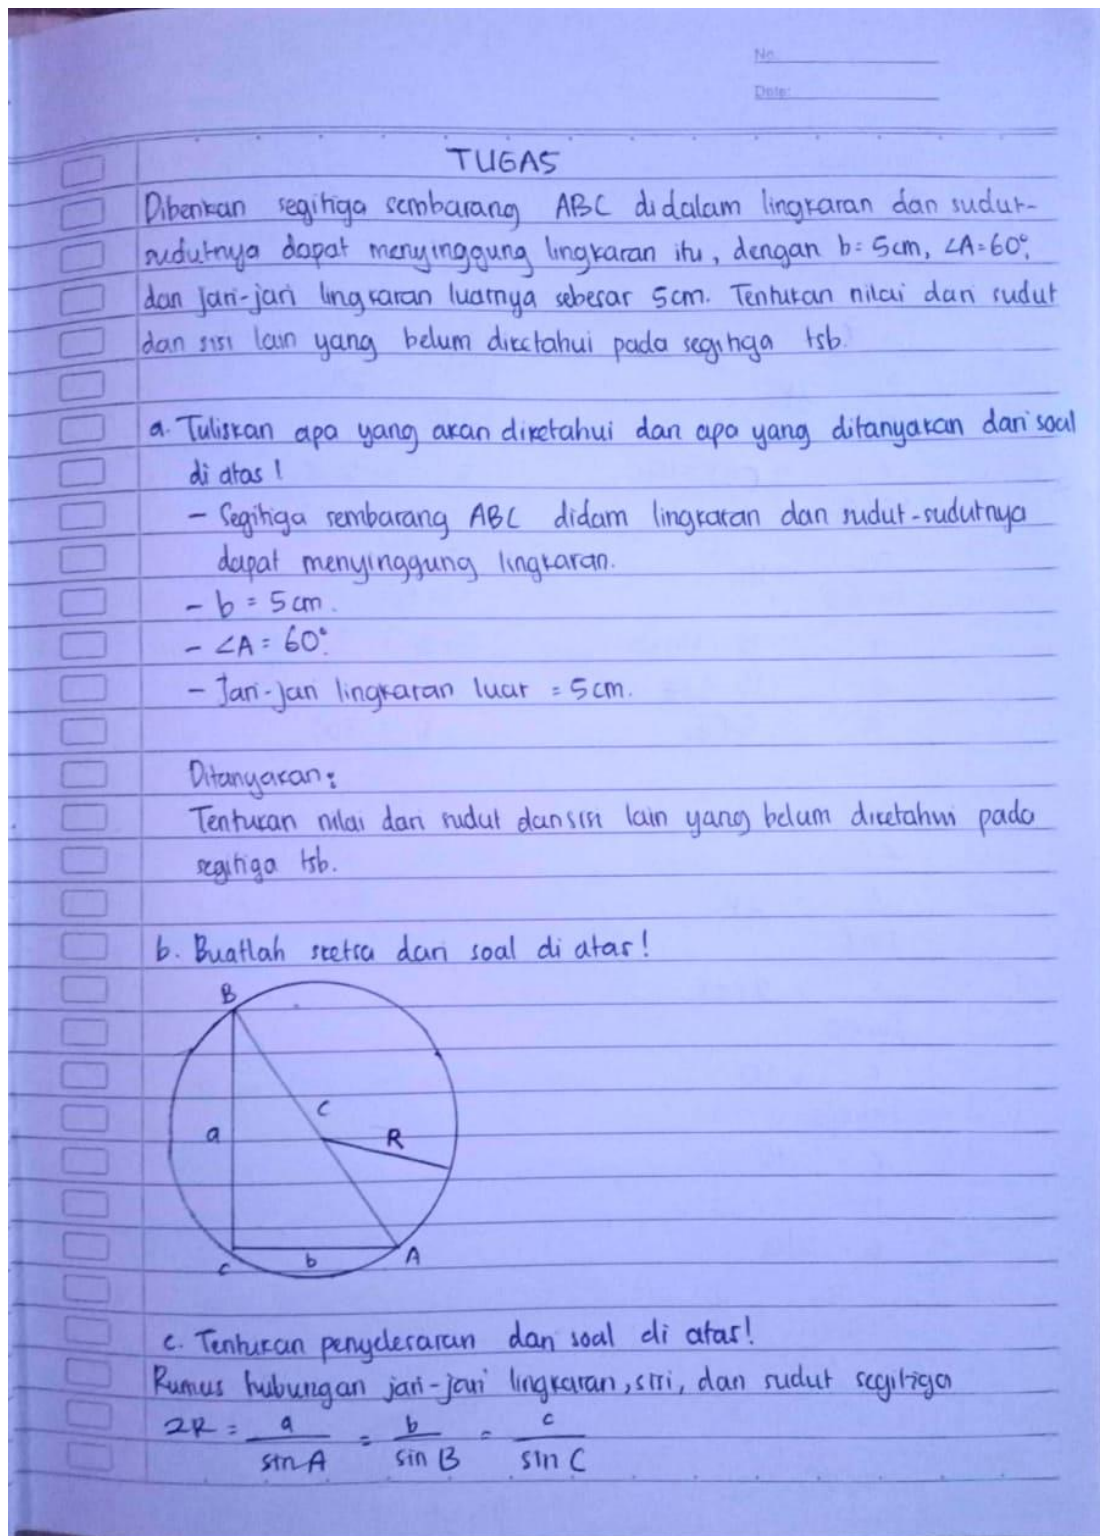 No.
Date:
TUGAS
Diberikan segitiga sembarang ABC didalam lingkaran dan sudut-
sudutnya dapat menyinggung lingkaran itu, dengan b = 5cm, ∠A = 60°,
dan jari-jari lingkaran luarnya sebesar 5cm. Tentukan nilai dari sudut
dan sisi lain yang belum diketahui pada segitiga tsb.
a. Tuliskan apa yang akan diketahui dan apa yang ditanyakan dari soal
di atas!
- Segitiga sembarang ABC didam lingkaran dan sudut-sudutnya
dapat menyinggung lingkaran.
- b = 5 cm.
- ∠A = 60°.
- Jari-jari lingkaran luar = 5 cm.
Ditanyakan:
Tentukan nilai dari sudut dan sisi lain yang belum diketahui pada
segitiga tsb.
b. Buatlah sketsa dari soal di atas!
B
C
a
R
b
A
C
c. Tentukan penyelesaian dari soal di atas!
Rumus hubungan jari-jari lingkaran, sisi, dan sudut segitiga
2R = a/sin A = b/sin B = c/sin C